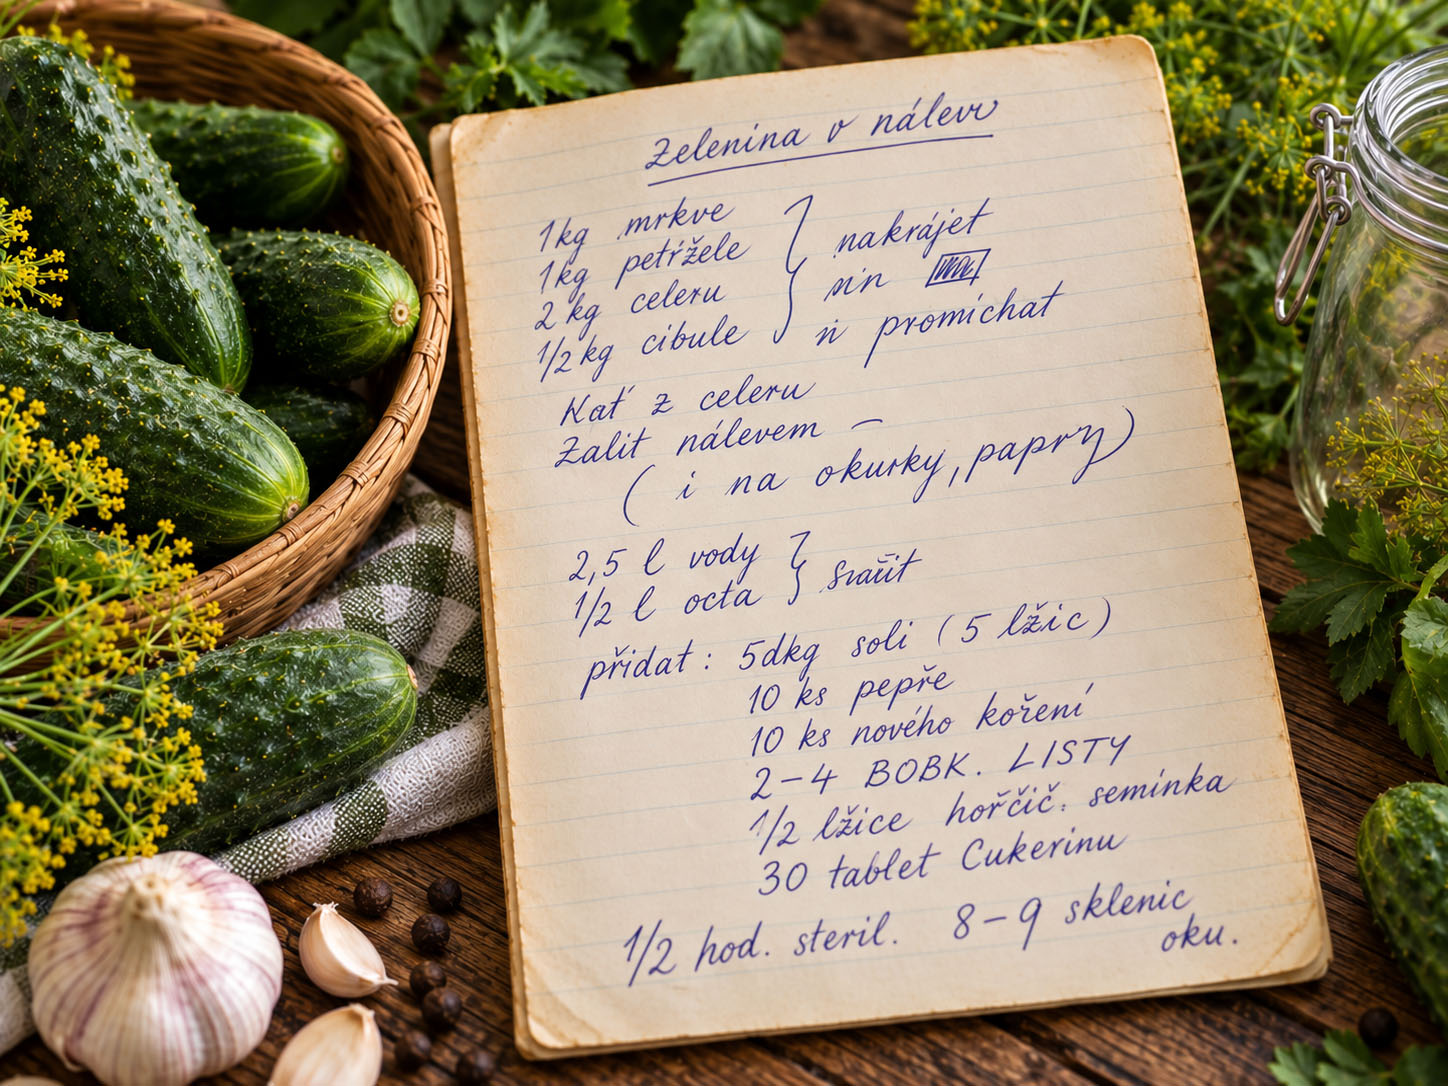 Zelenina v nálevu
1kg mrkve
1kg petržele
2kg celeru
1/2kg cibule
nakrájet
promíchat
Nať z celeru
Zalit nálevem –
( i na okurky, papry)
2,5 l vody
1/2 l octa
svařit
přidat: 5dkg soli (5 lžic)
10 ks pepře
10 ks nového koření
2–4 BOBK. LISTY
1/2 lžíce hořčič. semínka
30 tablet Cukerinu
1/2 hod. steril. 8–9 sklenic
oku.